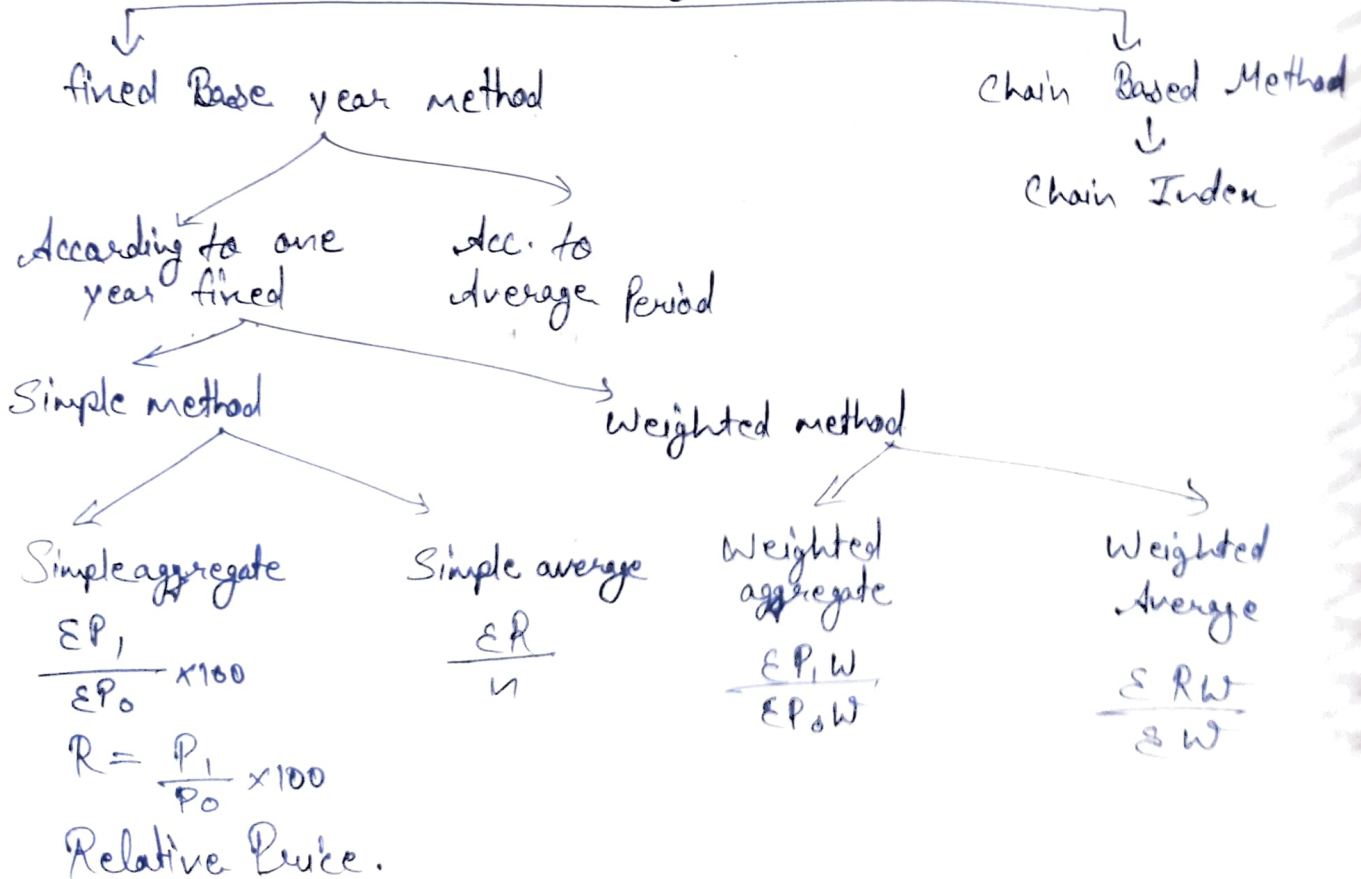 fixed Base year method
Chain Based Method
Chain Index
According to one
year fixed
Acc. to
Average Period
Simple method
Weighted method
Simple aggregate
ΣP₁
ΣP₀
×100
R = P₁
P₀
×100
Relative Price.
Simple average
ΣR
n
Weighted
aggregate
ΣP₁W
ΣP₀W
Weighted
Average
ΣRW
ΣW